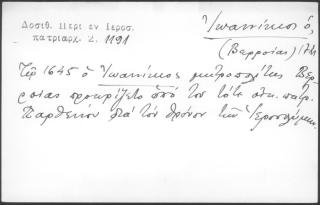 Δοσιθ. Περί εν Ιεροσ.
πατριαρχ. Σ. 1191
Ἰωαννίκιος ὁ,
(Βερροίας)
Τῷ 1645 ὁ Ἰωαννίκιος μητροπολίτης Βερ-
ροίας προεκρίζετο ὑπό του τότε οἰκ. πατρ.
Παρθενίου διά τόν θρόνον τῶν Ἱεροσολύμων.